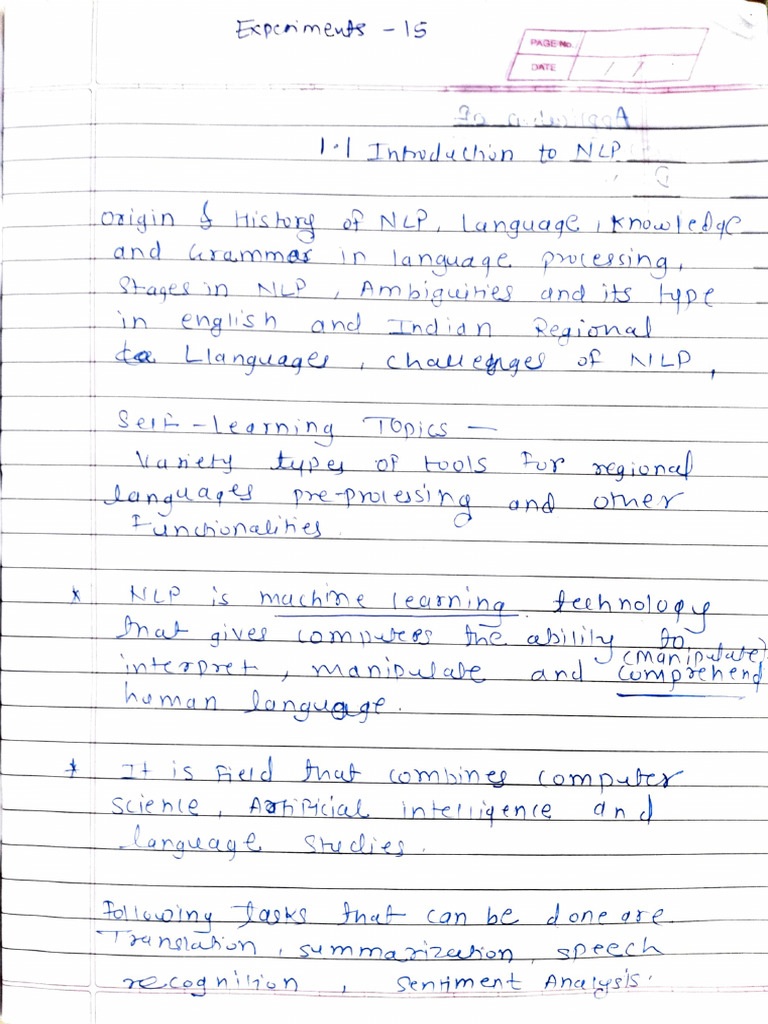 Experiments - 15
PAGE No.
DATE / /
Application of
1.1 Introduction to NLP
Origin & History of NLP, Language, Knowledge
and Grammar in language processing,
Stages in NLP, Ambiguities and its type
in english and Indian Regional
Llanguages, challenges of NLP,
Self-learning Topics —
Variety types of tools for regional
languages pre-processing and other
Functionalities.
* NLP is machine learning technology
that gives computers the ability to
(manipulate)
interpret, manipulate and comprehend
human language.
* It is Field that combines computer
science, Artificial intelligence and
language studies.
Following Tasks that can be done are
Translation, summarization, speech
recognition, Sentiment Analysis.